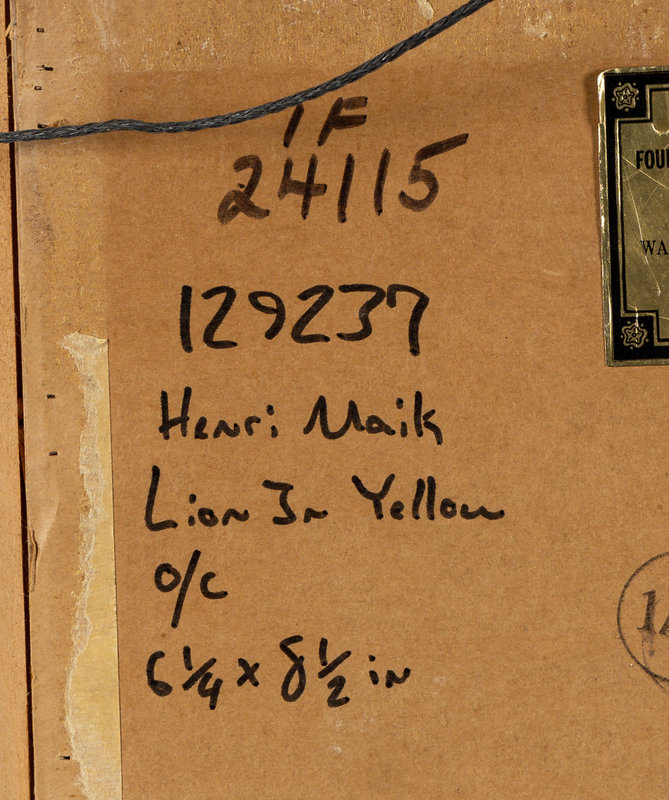 1F
24115
129237
Henri Maik
Lion In Yellow
O/C
6 1/4 x 8 1/2 in